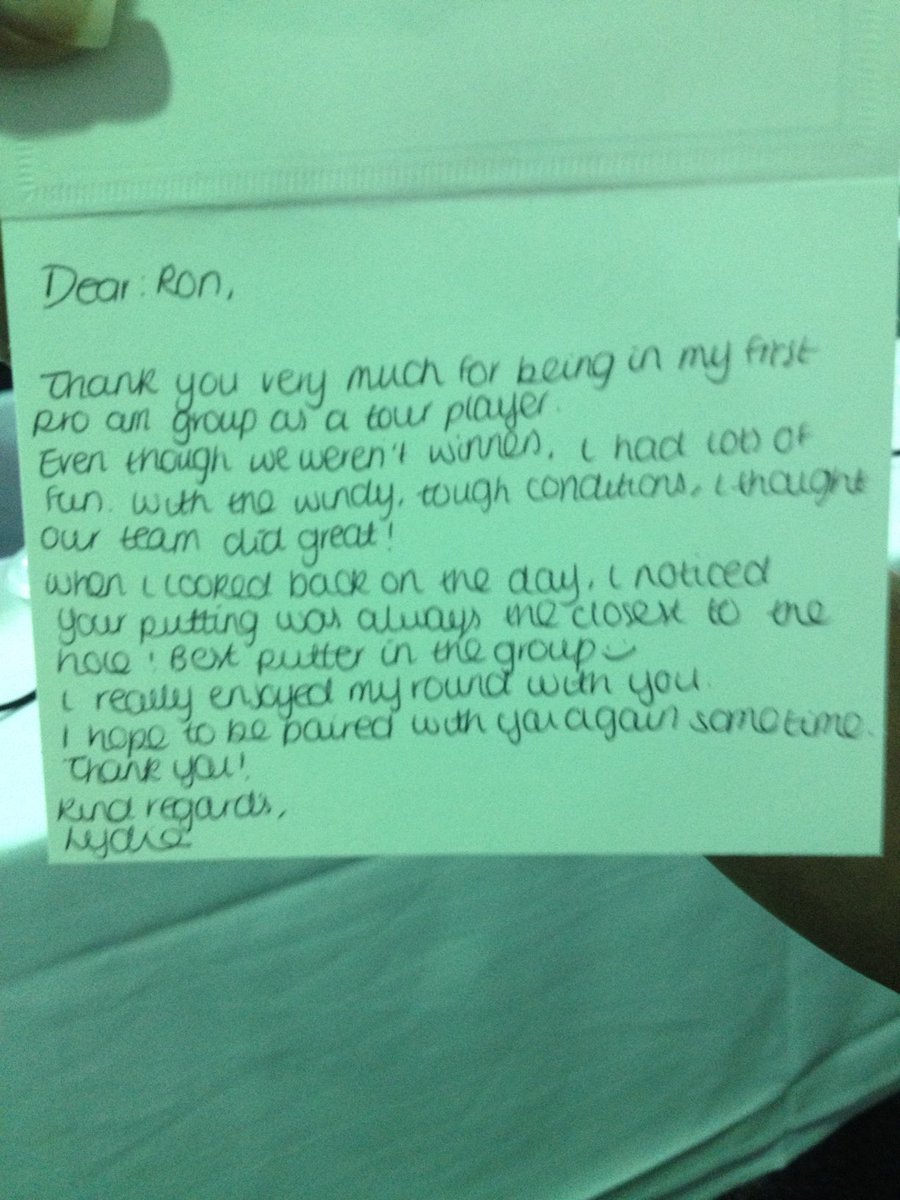 Dear: Ron,
Thank you very much for being in my first
pro am group as a tour player.
Even though we weren't winners, I had lots of
fun. With the windy, tough conditions, I thought
our team did great!
When I looked back on the day, I noticed
your putting was always the closest to the
hole! Best putter in the group
I really enjoyed my round with you.
I hope to be paired with you again sometime.
Thank you!
Kind regards,
Lydia